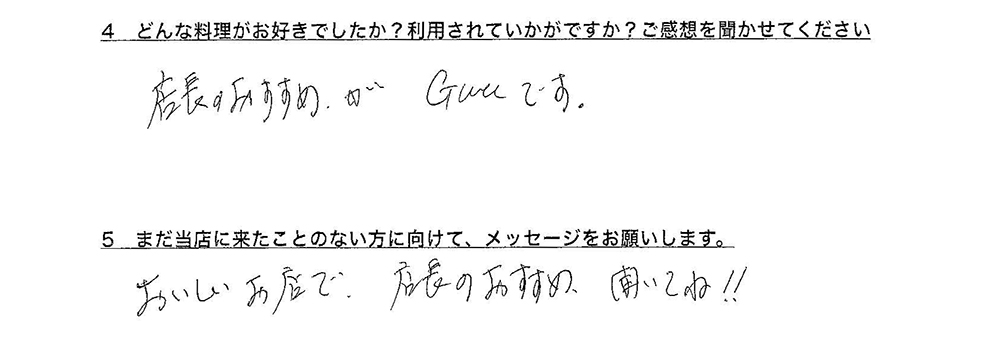 4 どんな料理がお好きでしたか？利用されていかがですか？ご感想を聞かせてください
店長のおすすめ、が Guuです。
5 まだ当店に来たことのない方に向けて、メッセージをお願いします。
おいしいお店で、店長のおすすめ、聞いてね!!